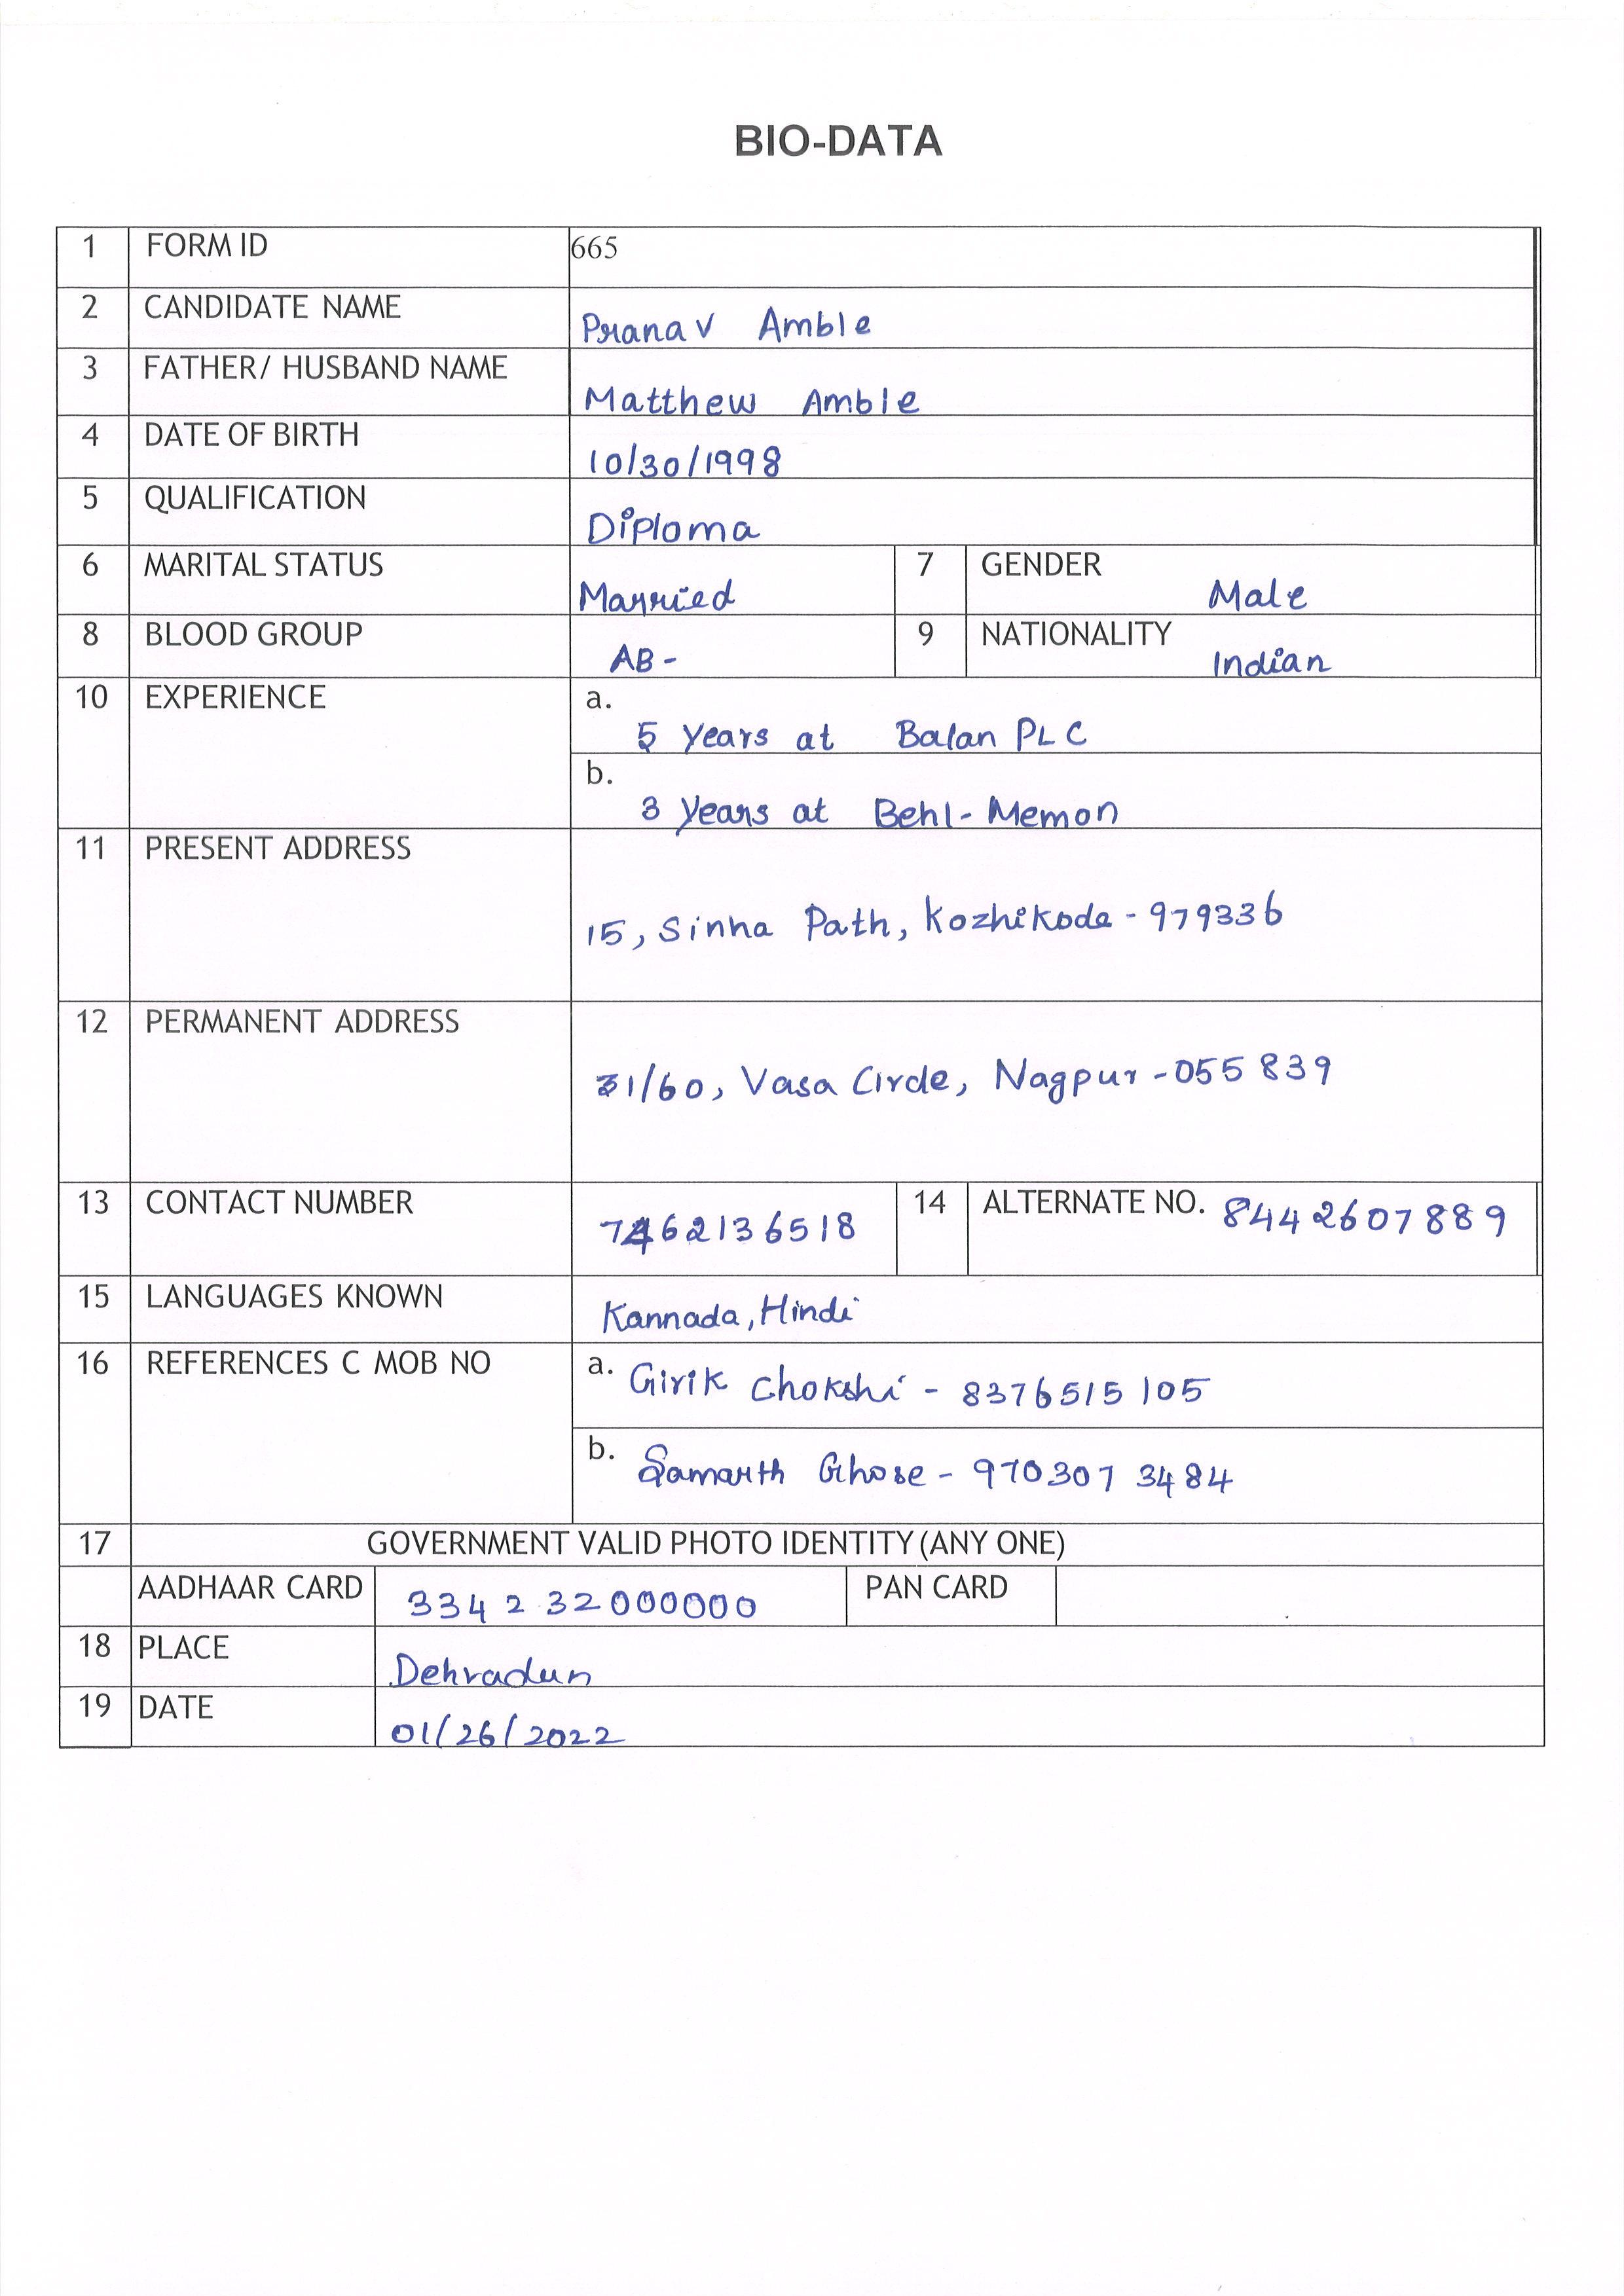 BIO-DATA
1 FORM ID 665
2 CANDIDATE NAME Pranav Amble
3 FATHER/ HUSBAND NAME Matthew Amble
4 DATE OF BIRTH 10/30/1998
5 QUALIFICATION Diploma
6 MARITAL STATUS Married 7 GENDER Male
8 BLOOD GROUP AB- 9 NATIONALITY Indian
10 EXPERIENCE a. 5 years at Balan PLC
b. 3 years at Behl-Memon
11 PRESENT ADDRESS 15, Sinha Path, Kozhikode - 979336
12 PERMANENT ADDRESS 31/60, Vasa Circle, Nagpur - 055839
13 CONTACT NUMBER 7462136518 14 ALTERNATE NO. 8442607889
15 LANGUAGES KNOWN Kannada, Hindi
16 REFERENCES C MOB NO a. Girik Chokshi - 8376515105
b. Samarth Ghose - 9703073484
17 GOVERNMENT VALID PHOTO IDENTITY (ANY ONE)
AADHAAR CARD 334232000000 PAN CARD
18 PLACE Dehradun
19 DATE 01/26/2022